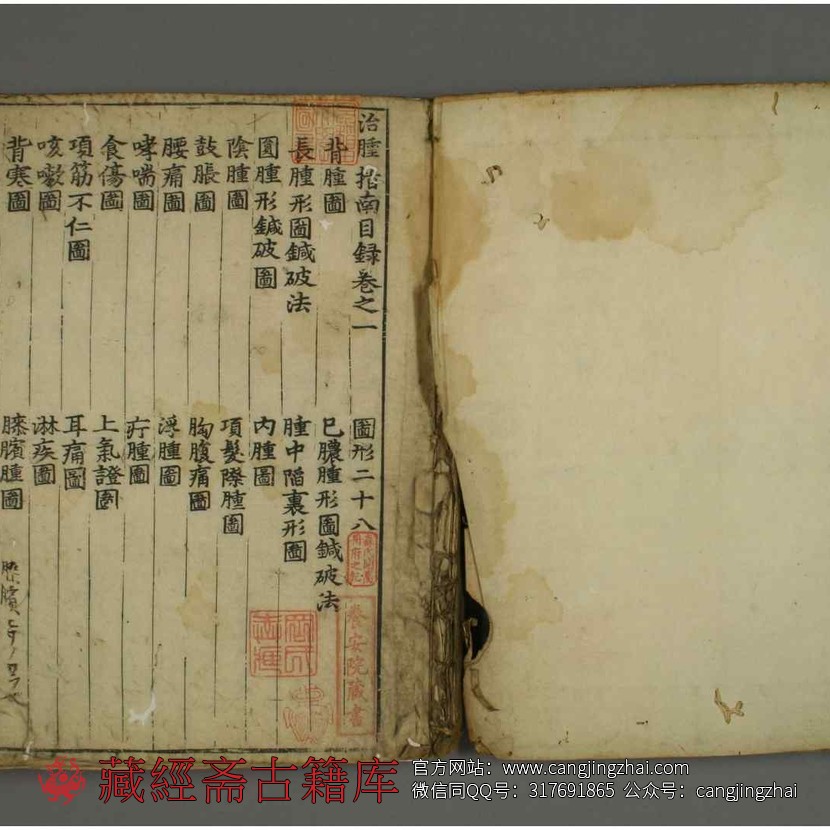 治腫指南目錄卷之一 圖形二十八
背腫圖 已膿腫形圖鍼破法
長腫形圖鍼破法 腫中陷裏形圖
圓腫形鍼破圖 內腫圖
陰腫圖 項髮際腫圖
鼓脹圖 胸腹痛圖
腰痛圖 浮腫圖
哮喘圖 疔腫圖
食傷圖 上氣證圖
項筋不仁圖 耳痛圖
咳嗽圖 淋疾圖
背寒圖 膝臏腫圖
養安院藏書
藏經斋古籍库
官方网站：www.cangjingzhai.com
微信同QQ号：317691865 公众号：cangjingzhai